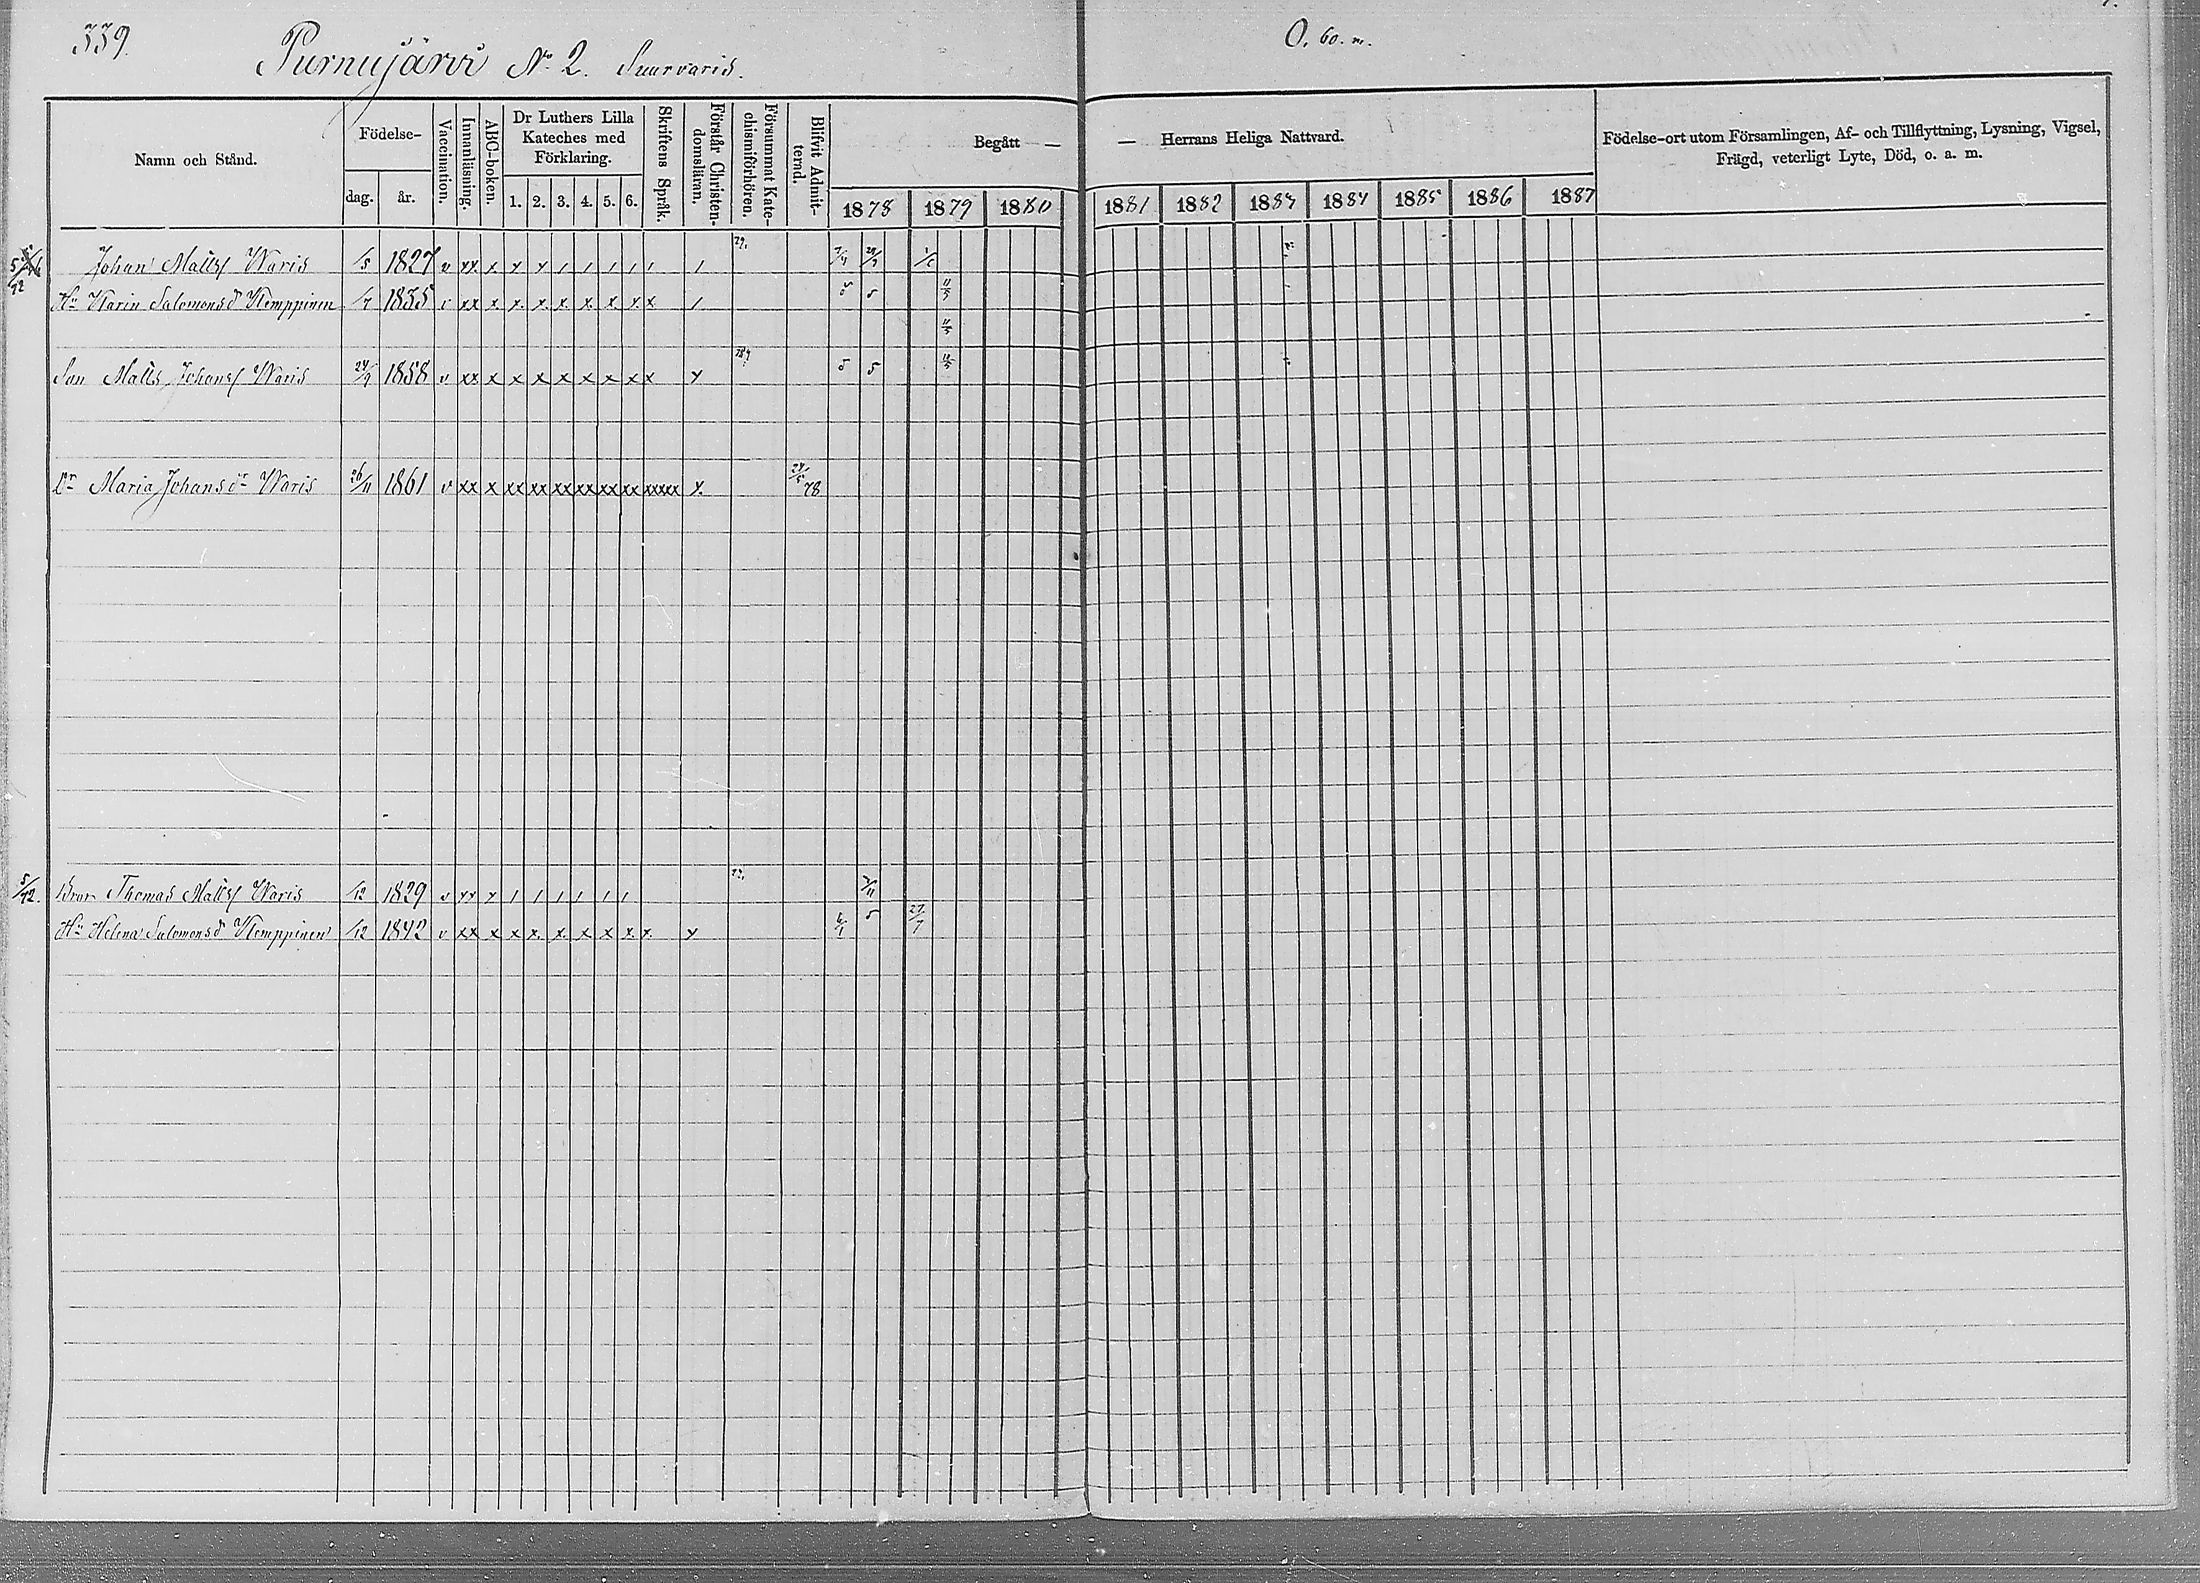 339.
Purnujärvi No 2. Suurvaris.
O. 60. m.
Namn och Stånd.
Födelse-
dag. år.
Vaccination.
Innanläsning.
ABC-boken.
Dr Luthers Lilla
Kateches med
Förklaring.
1. 2. 3. 4. 5. 6.
Skriftens Språk.
Förstår Christen-
domsläran.
Försummat Kate-
chismiförhören.
Blifvit Admit-
terad.
Begått —
— Herrans Heliga Nattvard.
1878 1879 1880 1881 1882 1883 1884 1885 1886 1887
Födelse-ort utom Församlingen, Af- och Tillflyttning, Lysning, Vigsel,
Frägd, veterligt Lyte, Död, o. a. m.
Johan Matts Waris /5 1827 v xx x x x / / / / / /
Hu Karin Salomonsd Kemppinen /7 1835 v xx x x. x. x. x. x x. x /
11/5
Son Matts Johans Waris 24/9 1858 v xx x x x x x x x x x 5 5 11/5
Dr Maria Johansdr Waris 26/11 1861 v xx x xx xx xx xx xx xx xxxxx x. 78
5/12. Bror Thomas Matts Waris /12 1829 v xx x / / / / / /
Hu Helena Salomonsd Kemppinen /12 1842 v xx x x x. x. x x x. x. x 27/7